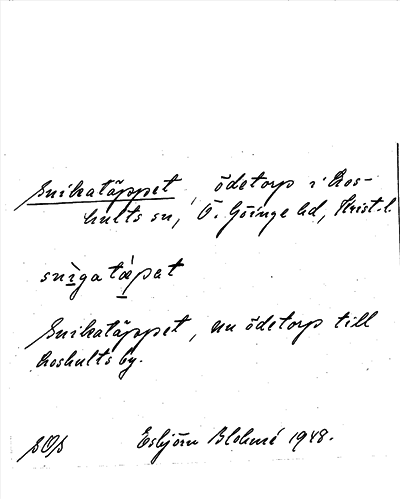 Snikatäppet, ödetorp i Los-
hults sn, Ö. Göinge hd, Krist. l.
snìgatápat
Snikatäppet, nu ödetorp till
Loshults by.
SOS
Esbjörn Blohmé 1948.